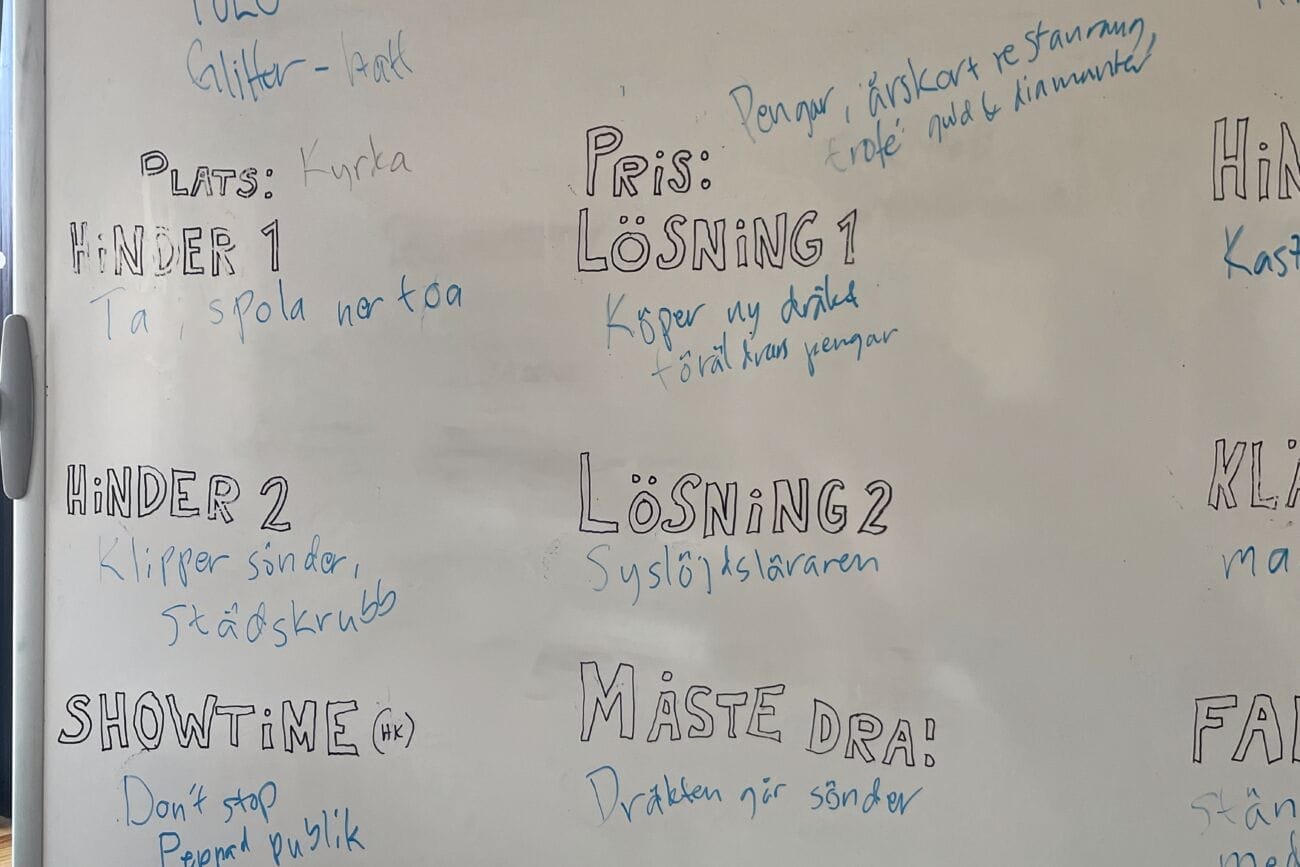 Glitter-hatt
Pengar, årskort restaurang,
trofé guld & diamanter
PLATS: Kyrka
PRIS:
HINDER 1
Ta, spola ner toa
LÖSNING 1
Köper ny dräkt
föräldrars pengar
HIN
Kast
HINDER 2
Klipper sönder,
städskrubb
LÖSNING 2
Syslöjdsläraren
KLÄ
ma
SHOWTIME (HK)
Don't stop
Peppad publik
MÅSTE DRA!
Dräkten går sönder
FAL
Stän
med